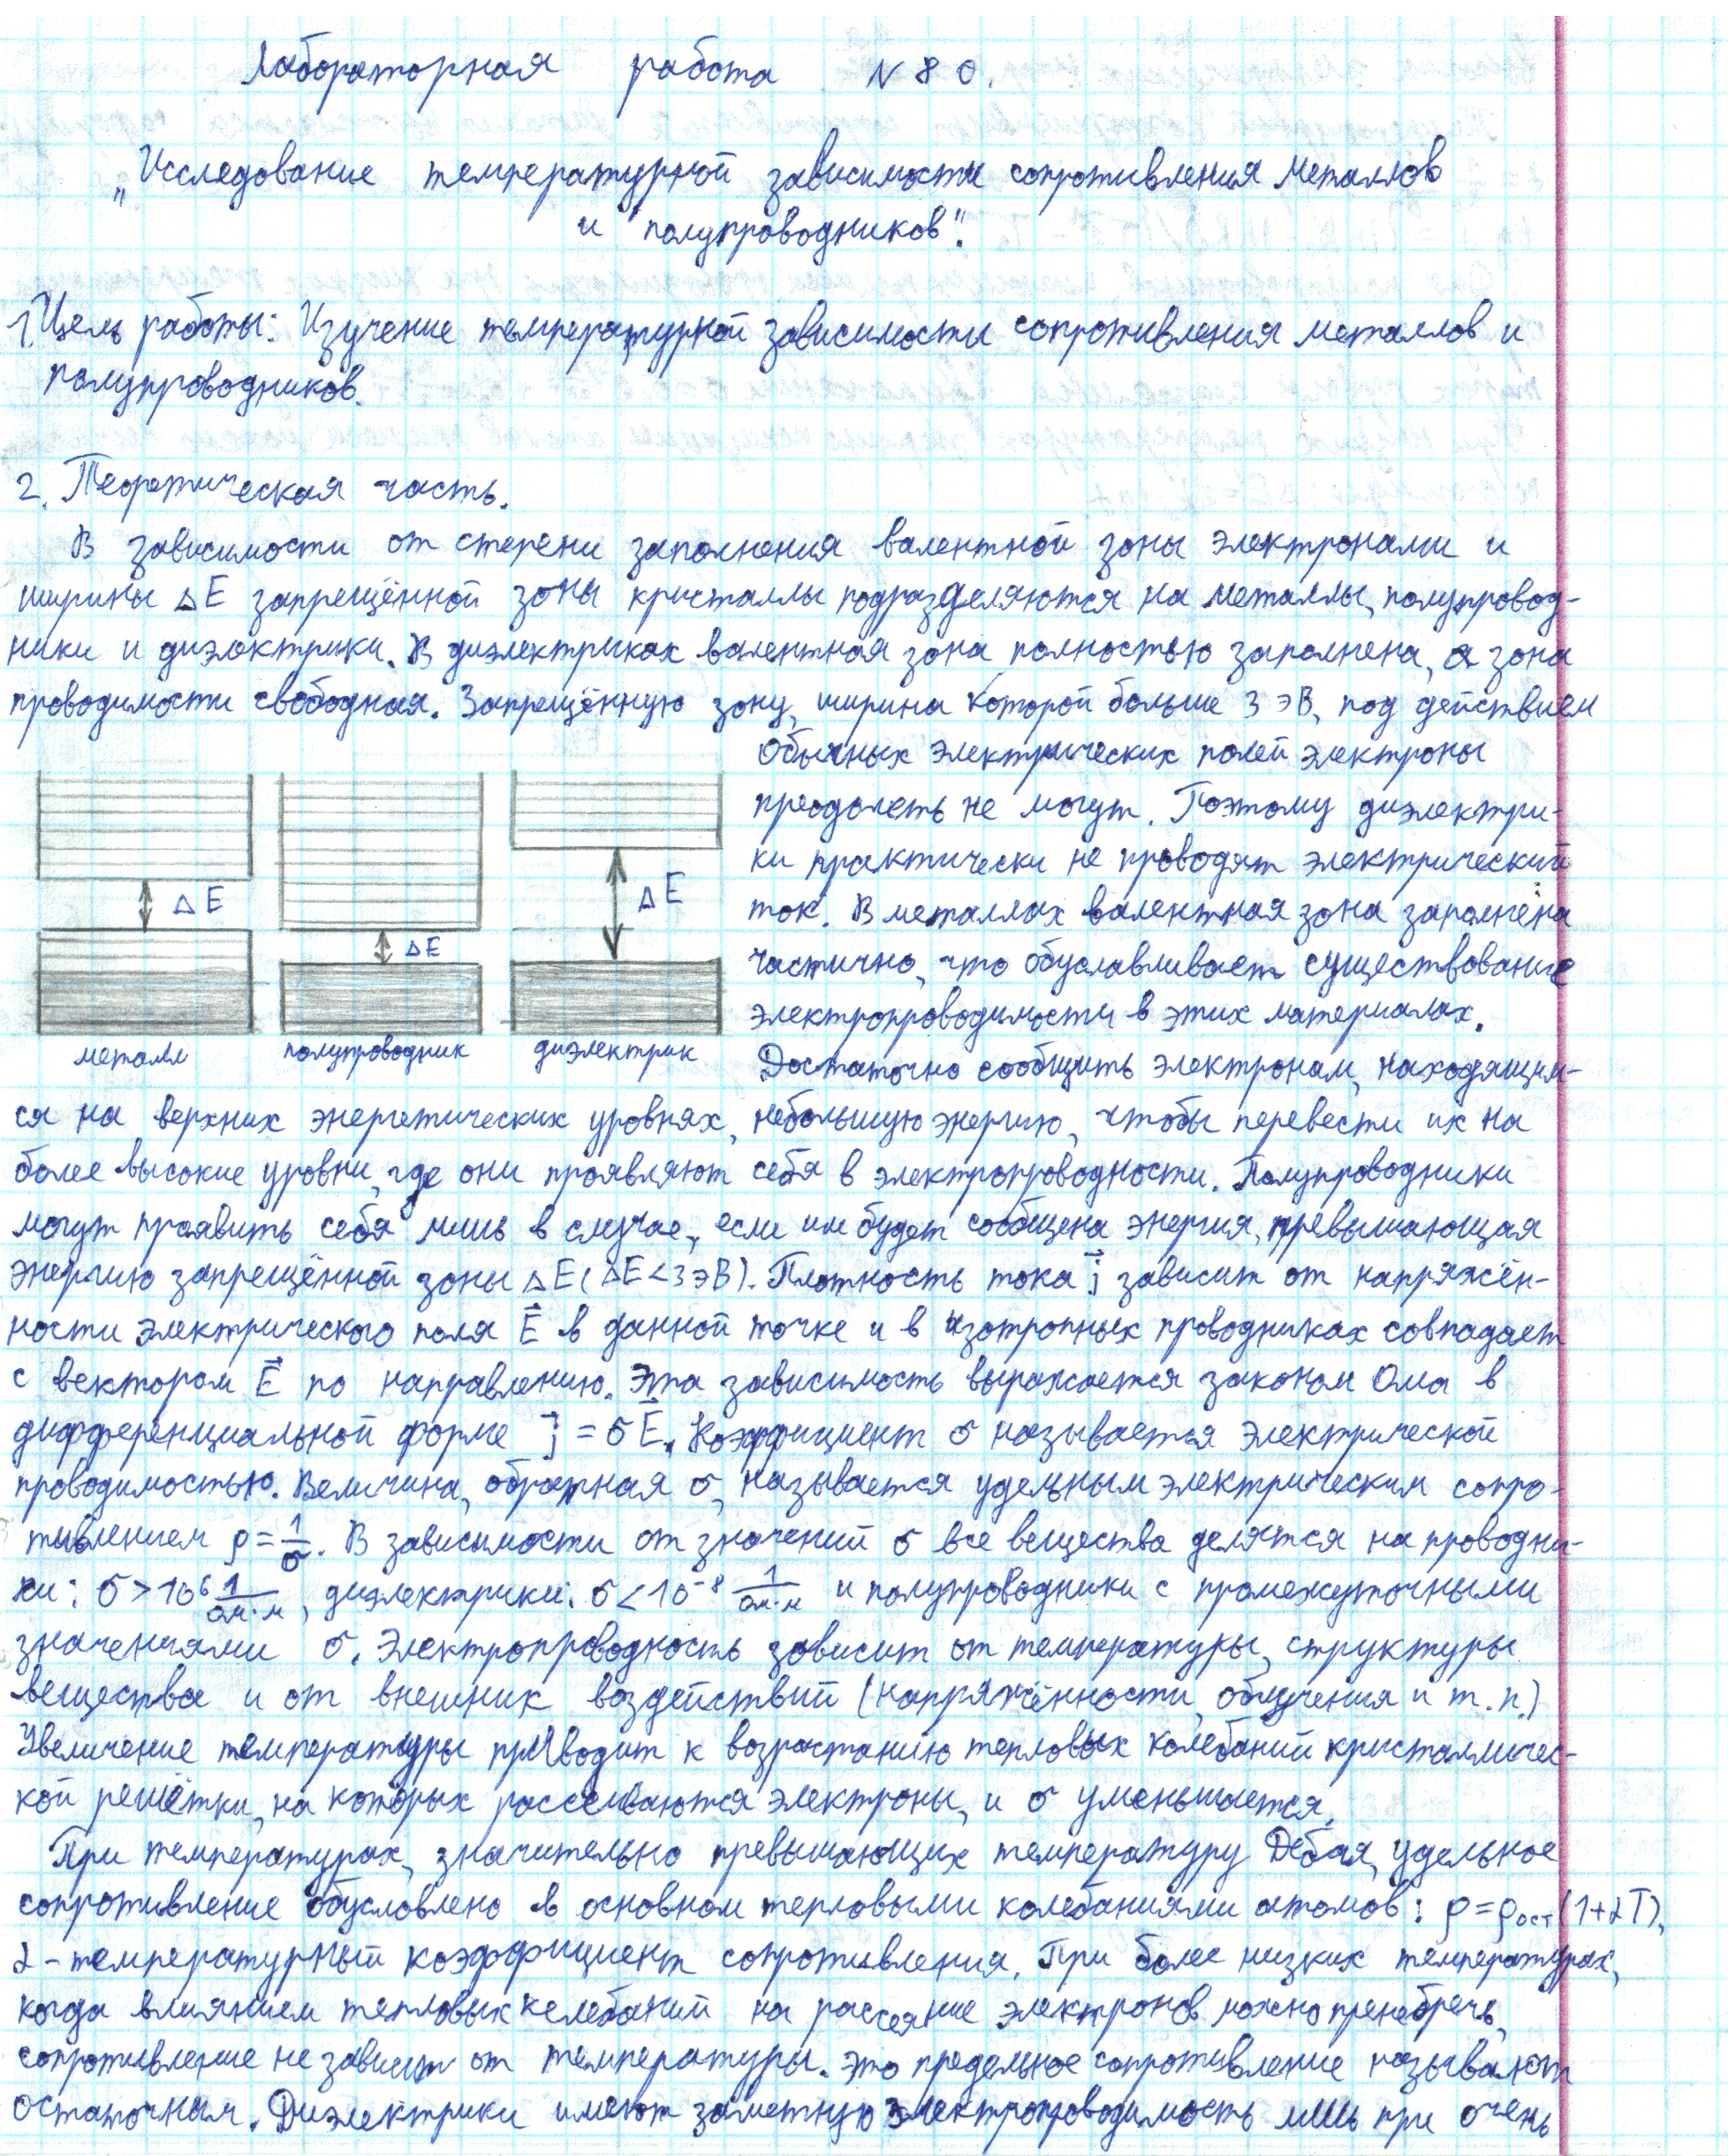 Лабораторная работа № 80.
„Исследование температурной зависимости сопротивления металлов
и полупроводников".
1. Цель работы: Изучение температурной зависимости сопротивления металлов и
полупроводников.
2. Теоретическая часть.
В зависимости от степени заполнения валентной зоны электронами и
ширины ΔE запрещённой зоны кристаллы подразделяются на металлы, полупровод-
ники и диэлектрики. В диэлектриках валентная зона полностью заполнена, а зона
проводимости свободная. Запрещённую зону, ширина которой больше 3 эВ, под действием
обычных электрических полей электроны
преодолеть не могут. Поэтому диэлектри-
ки практически не проводят электрический
ток. В металлах валентная зона заполнена
частично, что обуславливает существование
электропроводимости в этих материалах.
Достаточно сообщить электронам, находящим-
ΔE
ΔE
ΔE
металл
полупроводник
диэлектрик
ся на верхних энергетических уровнях, небольшую энергию, чтобы перевести их на
более высокие уровни, где они проявляют себя в электропроводности. Полупроводники
могут проявить себя лишь в случае, если им будет сообщена энергия, превышающая
энергию запрещённой зоны ΔE (ΔE<3 эВ). Плотность тока j⃗ зависит от напряжён-
ности электрического поля E⃗ в данной точке и в изотропных проводниках совпадает
с вектором E⃗ по направлению. Эта зависимость выражается законом Ома в
дифференциальной форме j⃗ = σE⃗. Коэффициент σ называется электрической
проводимостью. Величина, обратная σ, называется удельным электрическим сопро-
тивлением ρ=1/σ. В зависимости от значений σ все вещества делятся на проводни-
ки: σ>10⁶ 1/ом·м, диэлектрики: σ<10⁻⁸ 1/ом·м и полупроводники с промежуточными
значениями σ. Электропроводность зависит от температуры, структуры
вещества и от внешних воздействий (напряжённости, облучения и т.п.)
Увеличение температуры приводит к возрастанию тепловых колебаний кристалличес-
кой решётки, на которых рассеиваются электроны, и σ уменьшается.
При температурах, значительно превышающих температуру Дебая, удельное
сопротивление обусловлено в основном тепловыми колебаниями атомов: ρ=ρост(1+αT),
α - температурный коэффициент сопротивления. При более низких температурах,
когда влиянием тепловых колебаний на рассеяние электронов можно пренебречь,
сопротивление не зависит от температуры. Это предельное сопротивление называют
остаточным. Диэлектрики имеют заметную электропроводимость лишь при очень